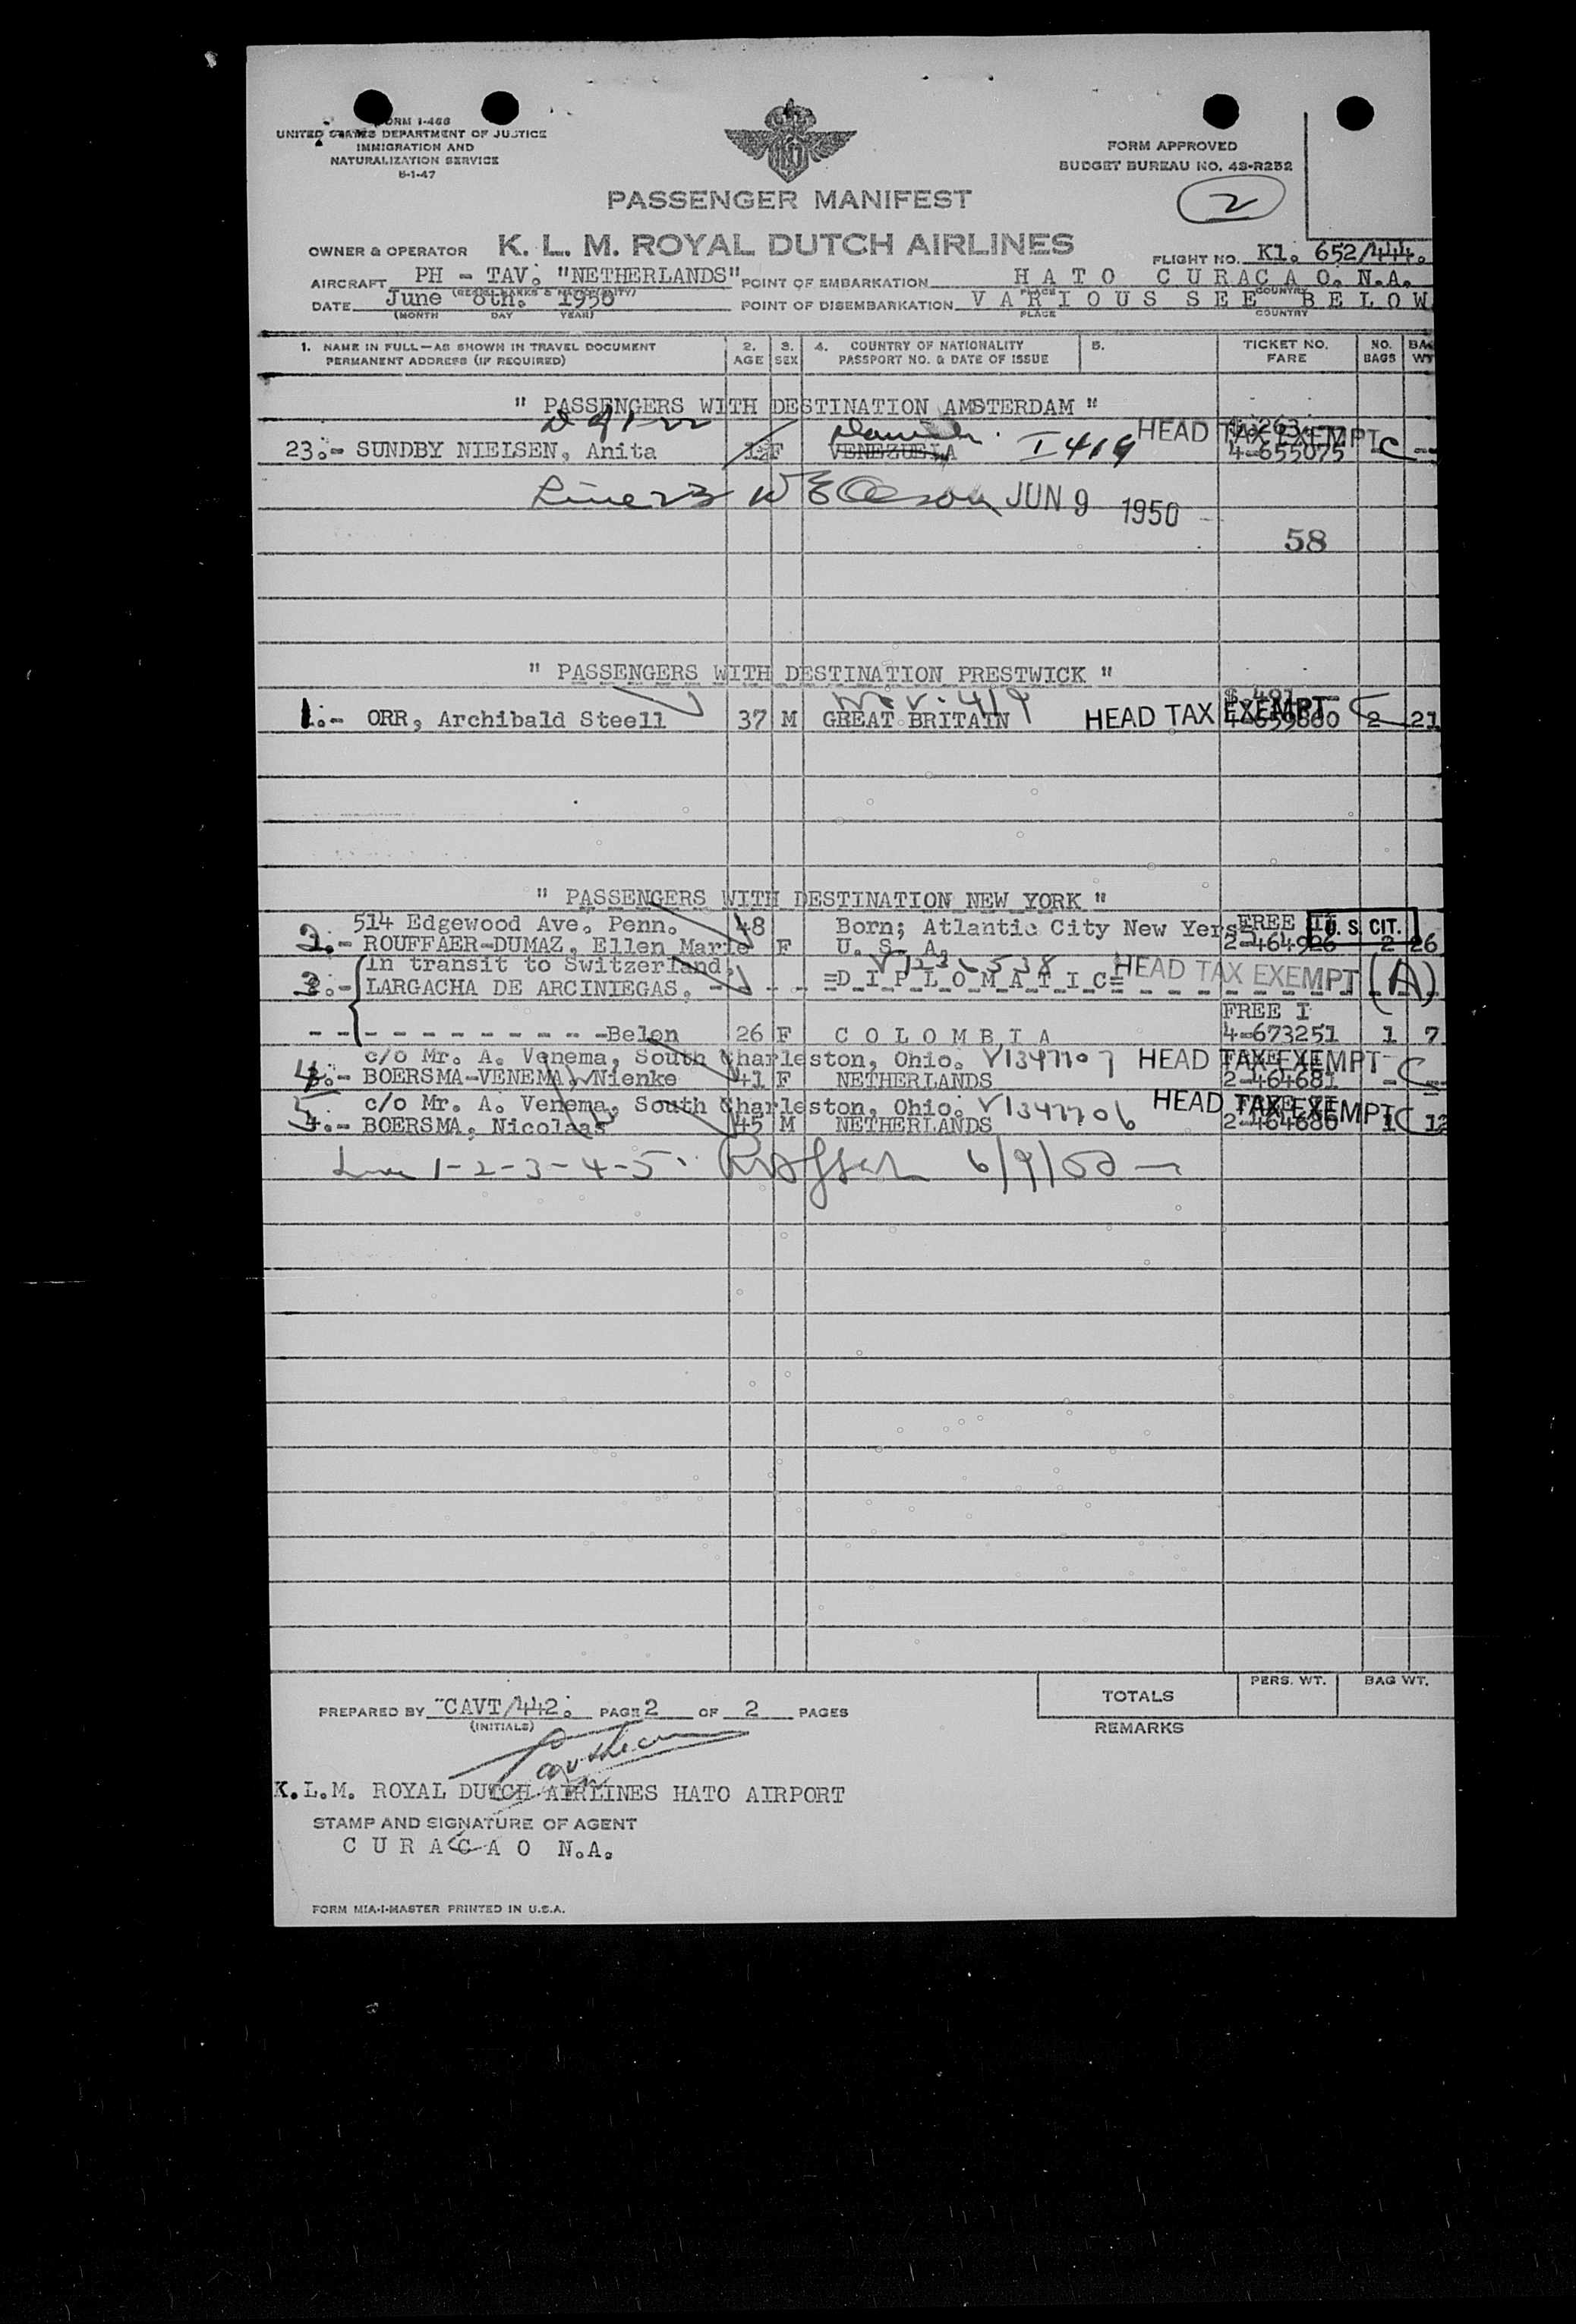 FORM I-466
UNITED STATES DEPARTMENT OF JUSTICE
IMMIGRATION AND
NATURALIZATION SERVICE
5-1-47
FORM APPROVED
BUDGET BUREAU NO. 43-R252
2
PASSENGER MANIFEST
OWNER & OPERATOR K. L. M. ROYAL DUTCH AIRLINES
FLIGHT NO. Kl. 652/444.
AIRCRAFT PH - TAV. "NETHERLANDS" POINT OF EMBARKATION H A T O C U R A C A O. N.A.
DATE June 8th. 1950 POINT OF DISEMBARKATION V A R I O U S S E E B E L O W
(MONTH DAY YEAR) PLACE COUNTRY
1. NAME IN FULL—AS SHOWN IN TRAVEL DOCUMENT 2. 3. 4. COUNTRY OF NATIONALITY 5. TICKET NO. NO. BAG
PERMANENT ADDRESS (IF REQUIRED) AGE SEX PASSPORT NO. & DATE OF ISSUE FARE BAGS WT
" PASSENGERS WITH DESTINATION AMSTERDAM "
Danish I 419 HEAD TAX EXEMPT
23.- SUNDBY NIELSEN, Anita F VENEZUELA 4-655075 C --
Line 23 JUN 9 1950
58
" PASSENGERS WITH DESTINATION PRESTWICK "
1.- ORR, Archibald Steell 37 M GREAT BRITAIN HEAD TAX EXEMPT 2 21
" PASSENGERS WITH DESTINATION NEW YORK "
514 Edgewood Ave. Penn. 48 Born; Atlantic City New Yers FREE II U. S. CIT.
2.- ROUFFAER-DUMAZ, Ellen Marie F U. S. A. 2-464926 2 26
In transit to Switzerland. HEAD TAX EXEMPT (A)
3.- LARGACHA DE ARCINIEGAS. - - - - =D_I_P_L_O_M_A_T_I_C=
FREE I
- - - - - - - - - - - -Belen 26 F C O L O M B I A 4-673251 1 7
c/o Mr. A. Venema, South Charleston, Ohio. V1347707 HEAD TAX EXEMPT
4.- BOERSMA-VENEMA, Nienke 41 F NETHERLANDS 2-464681 - C --
c/o Mr. A. Venema, South Charleston, Ohio. V1347706 HEAD TAX EXEMPT
5 4.- BOERSMA, Nicolaas 45 M NETHERLANDS 2-464680 1 C 12
Line 1-2-3-4-5 6/9/50
PERS. WT. BAG WT.
TOTALS
PREPARED BY CAVT/442. PAGE 2 OF 2 PAGES
(INITIALS)
REMARKS
K.L.M. ROYAL DUTCH AIRLINES HATO AIRPORT
STAMP AND SIGNATURE OF AGENT
C U R A C A O N.A.
FORM MIA-I-MASTER PRINTED IN U.S.A.